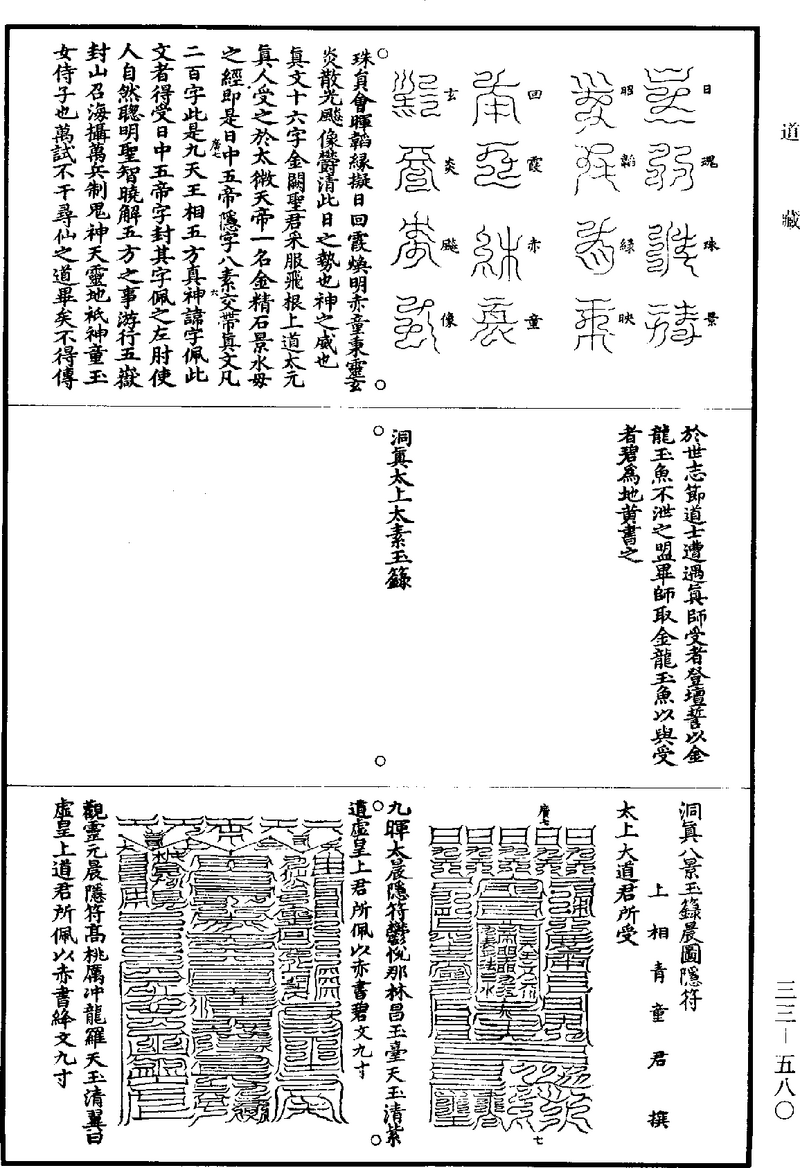 道藏
日魂珠景
昭韜綠映
回霞赤童
玄炎飈像
珠貞會暉韜綠擬日回霞煥明赤童秉靈玄
炎散光飈像鬱清此日之勢也神之威也
真文十六字金闕聖君采服飛根上道太元
真人受之於太微天帝一名金精石景水母
之經即是日中五帝隱字八素交帶真文凡
廣七
六
二百字此是九天王相五方真神諱字佩此
文者得受日中五帝字封其字佩之左肘使
人自然聰明聖智曉解五方之事游行五嶽
封山召海攝萬兵制鬼神天靈地祇神童玉
女侍子也萬試不干尋仙之道畢矣不得傳
於世志節道士遭遇真師受者登壇誓以金
龍玉魚不泄之盟畢師取金龍玉魚以與受
者碧為地黃書之
洞真太上太素玉籙
洞真八景玉籙晨圖隱符
上相青童君撰
太上大道君所受
廣七
七
九暉太晨隱符鬱悅那林昌玉臺天玉清紫
道虛皇上君所佩以赤書碧文九寸
觀靈元晨隱符高桃厲沖龍羅天玉清翼日
虛皇上道君所佩以赤書絳文九寸
三三—五八〇